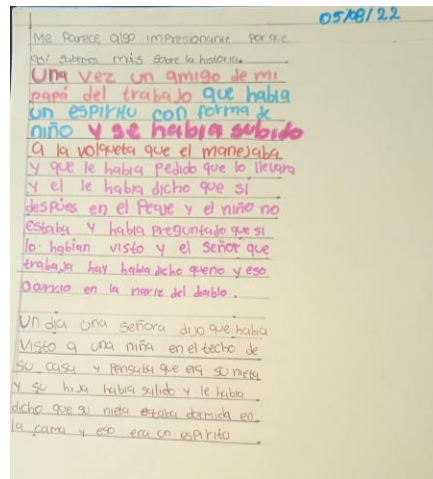 05/08/22
Me Parece algo impresionante por que
asi sabemos más sobre la historia.
Una vez un amigo de mi
papá del trabajo que había
un espiritu con forma de
niño y se habia subido
a la volqueta que el manejaba
y que le habia pedido que lo llevara
y el le habia dicho que si
despues en el Peaje y el niño no
estaba y habia preguntado que si
lo habian visto y el señor que
trabaja hay habia dicho queno y eso
ocurrio en la nariz del diablo.
Un dia una señora dijo que habia
visto a una niña en el techo de
su casa y pensaba que era su nieta
y su hija habia salido y le habia
dicho que su nieta estaba dormida en
la cama y eso era un espirito